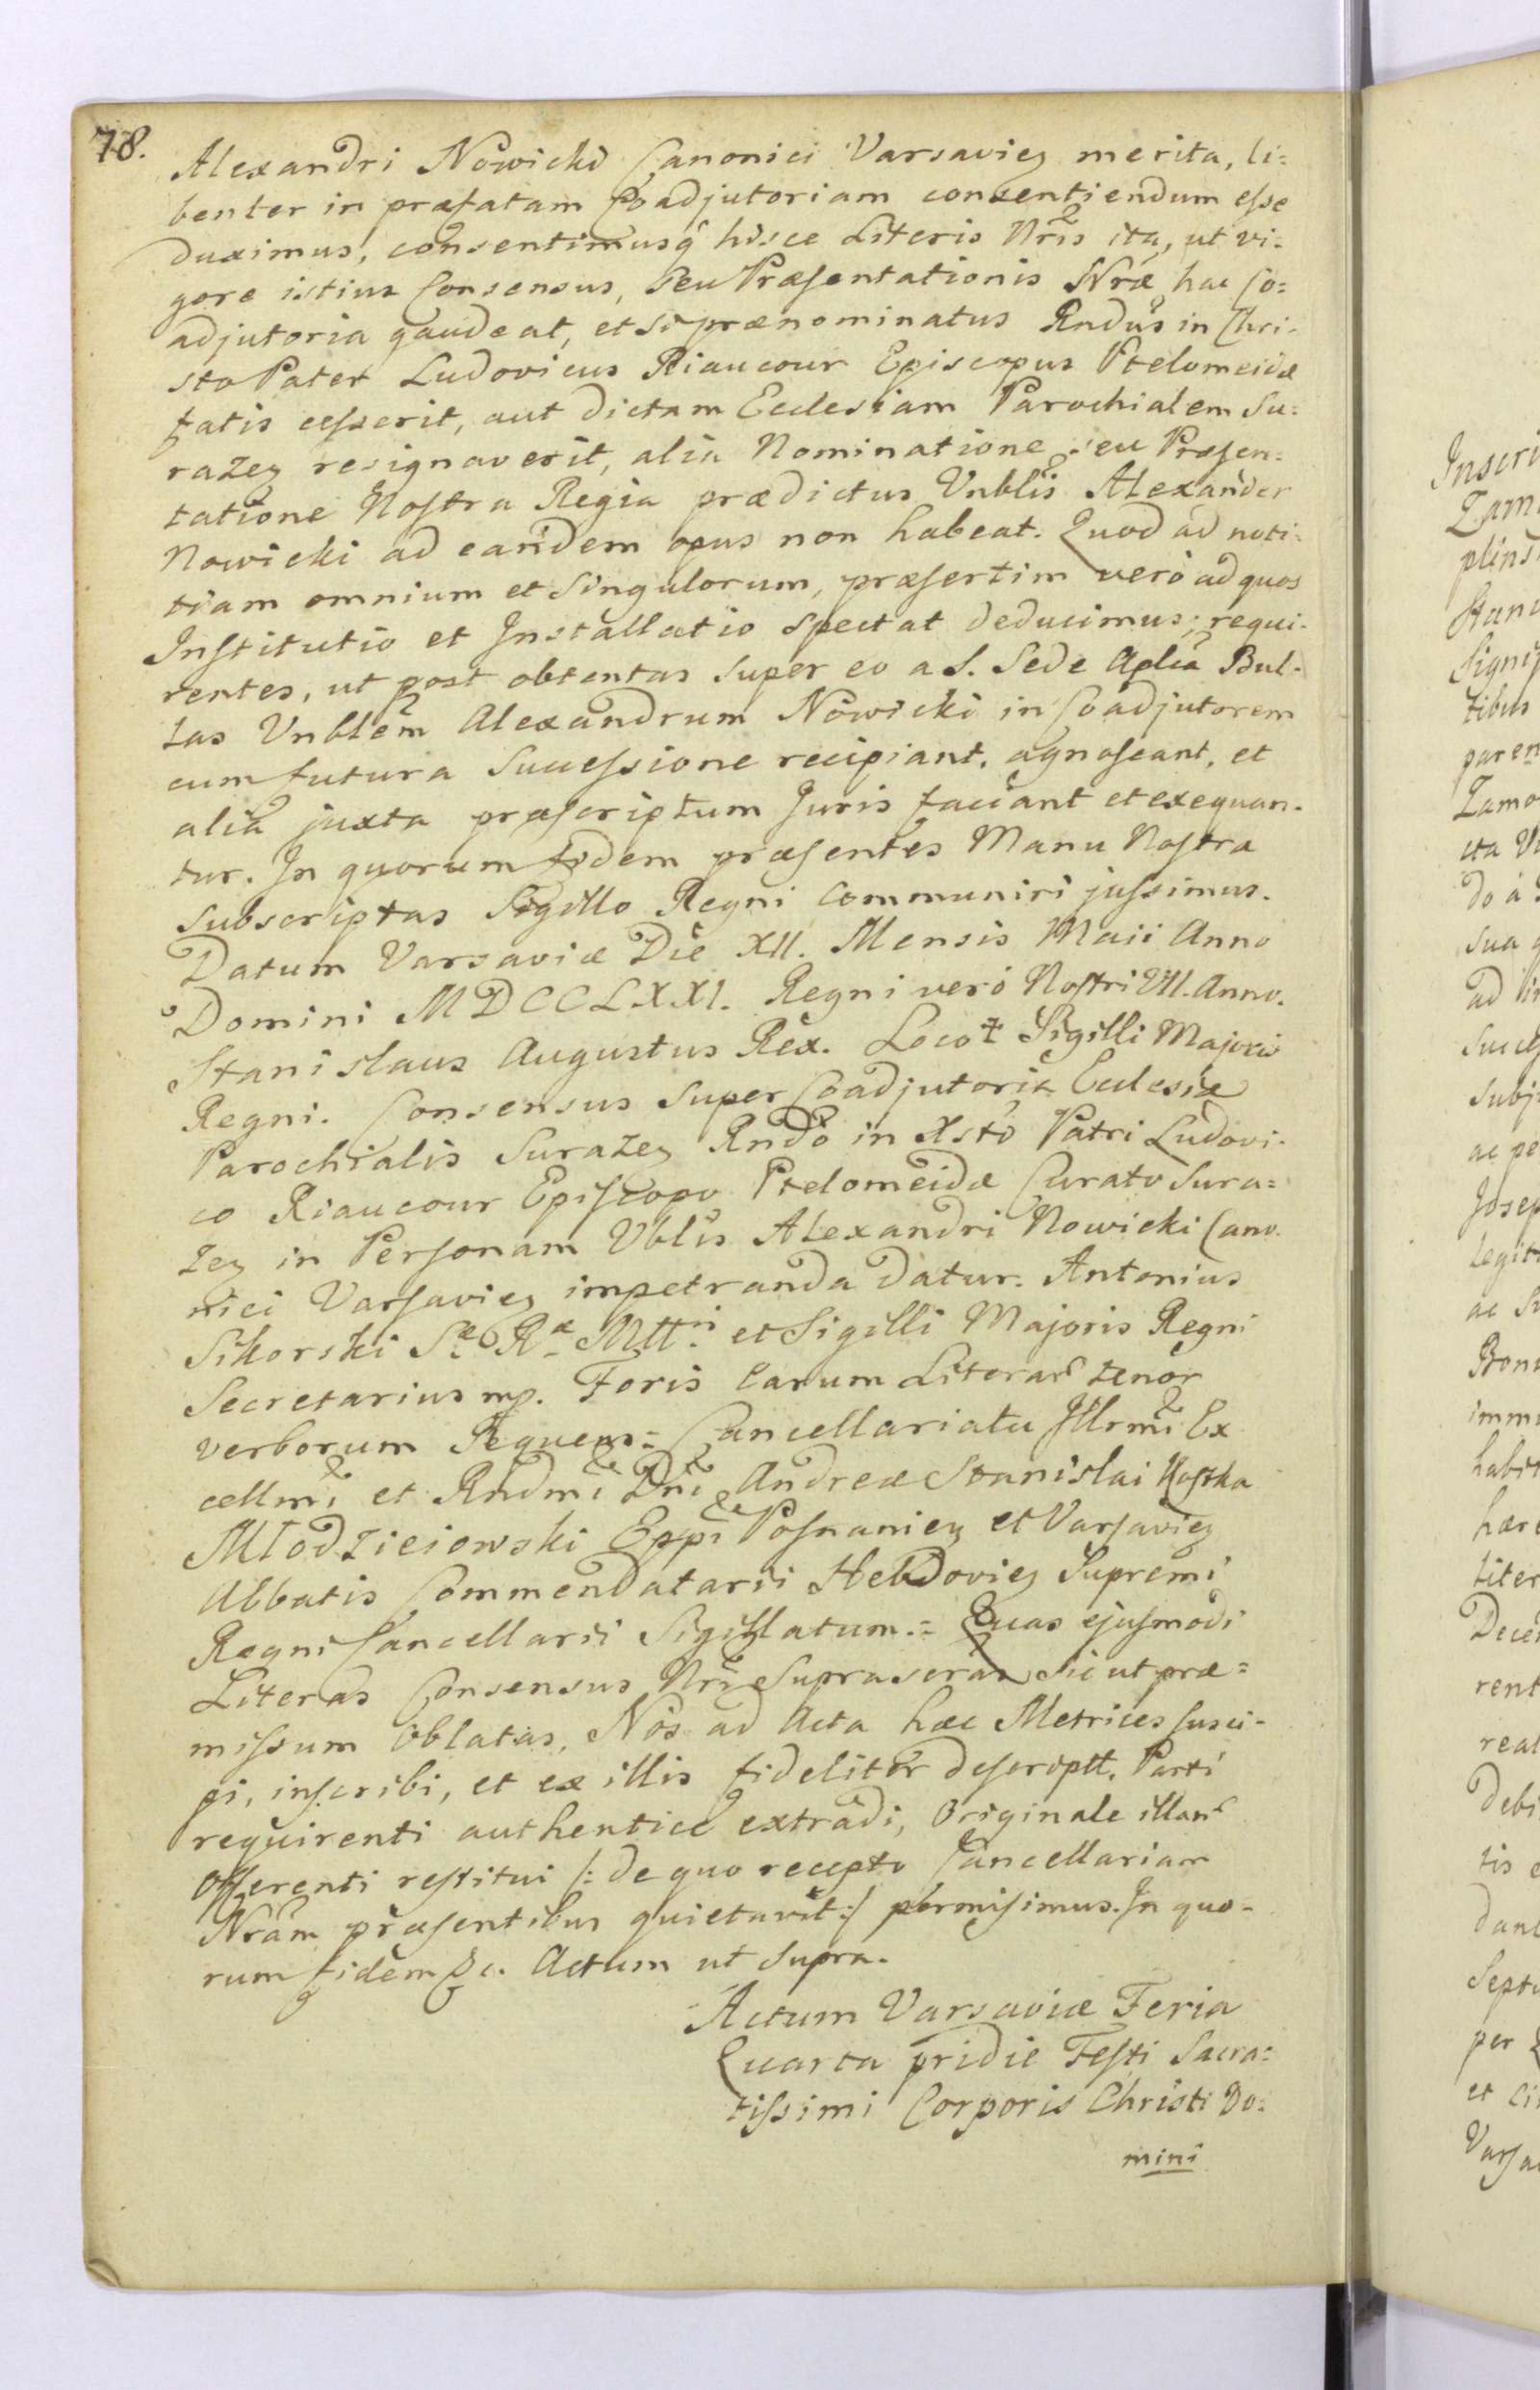 78.
Alexandri Nowicki Canonici Varsavien merita, li:
benter in præfatam Coadjutoriam consentiendum esse
duximus, consentimusq hisce Literis Nris ita, ut vi:
gore istius Consensus, seu Præsentationis Nræ hac Co:
adjutoria gaudeat, et si prænominatus Rndus in Chri:
sto Pater Ludovicus Riaucour Episcopus Ptolomeidæ
fatis cesserit, aut dictam Ecclesiam Parochialem Su:
razen resignaverit, alia Nominatione seu Præsen:
tatione Nostra Regia prædictus Vnblis Alexander
Nowicki ad eandem opus non habeat. Quod ad noti:
tiam omnium et singulorum, præsertim vero ad quos
Institutio et Installatio spectat deducimus; requi:
rentes, ut post obtentas super eo a S. Sede Aplica Bul:
las Vnblem Alexandrum Nowicki in Coadjutorem
cum futura successione recipiant, agnoscant, et
alia juxta præscriptum Juris faciant et exequan:
tur. In quorum fidem præsentes Manu Nostra
subscriptas Sigillo Regni communiri jussimus.
Datum Varsaviæ Die XII. Mensis Maii Anno
Domini MDCCLXXI. Regni vero Nostri VII. Anno.
Stanislaus Augustus Rex. Loco Sigilli Majoris
Regni. Consensus super Coadjutoria Ecclesiæ
Parochialis Surazen Rndo in Xsto Patri Ludovi:
co Riaucour Episcopo Ptelomeidæ Curato Sura:
zen in Personam Vblis Alexandri Nowicki Cano:
nici Varsavien impetranda datur. Antonius
Sikorski Sæ Ræ Mttis et Sigilli Majoris Regni
Secretarius mp. Foris earum Literar tenor
verborum sequens = Cancellariatu Illrmi Ex
cellmi et Rndmi Dni Andreæ Stanislai Kostka
Młodzieiowski Eppi Posnanien et Varsavien
Abbatis Commendatarii Hebdovien Supremi
Regni Cancellarii Sigillatum.= Quas ejusmodi
Literas Consensus Nri suprascras sic ut præ=
missum oblatas, Nos ad Acta hæc Metrices susci-
pi, inscribi, et ex illis fideliter descriptt. Parti
requirenti authentice extradi, originale illar
offerenti restitui /: de quo recepto Cancellariam
Nram præsentibus quietavit :/ permisimus. In quo-
rum fidem &c. Actum ut supra.
Actum Varsaviæ Feria
Quarta pridie Festi Sacra:
tissimi Corporis Christi Do:
mini